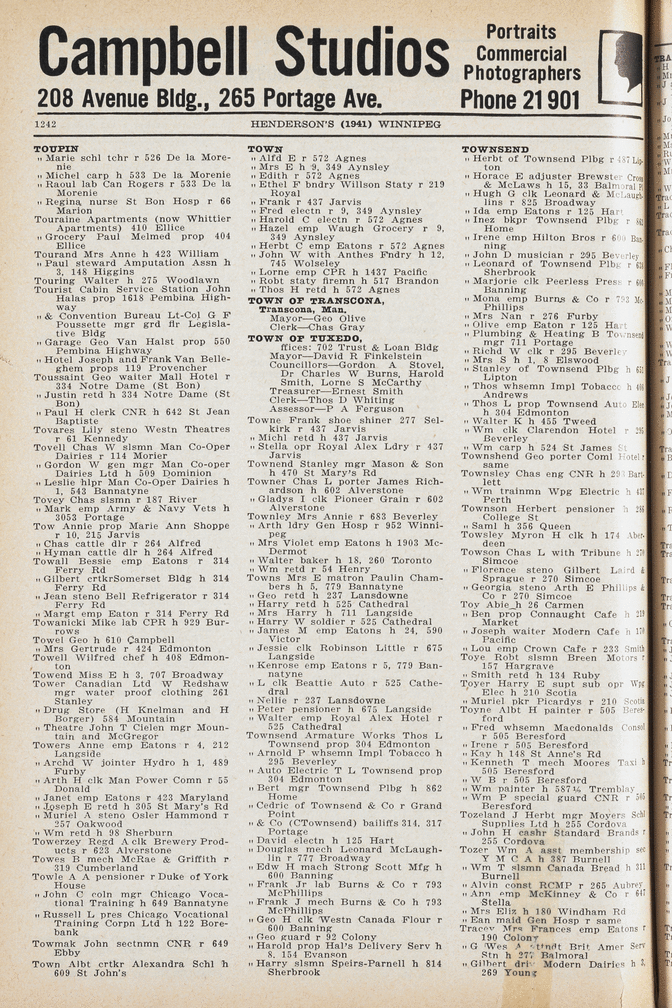 Campbell Studios
Portraits
Commercial
Photographers
208 Avenue Bldg., 265 Portage Ave.
Phone 21 901
1242
HENDERSON'S (1941) WINNIPEG
TOUPIN
" Marie schl tchr r 526 De la More-
nie
" Michel carp h 533 De la Morenie
" Raoul lab Can Rogers r 533 De la
Morenie
" Regina nurse St Bon Hosp r 66
Marion
Touraine Apartments (now Whittier
Apartments) 410 Ellice
" Grocery Paul Melmed prop 404
Ellice
Tourand Mrs Anne h 423 William
" Paul steward Amputation Assn h
3, 148 Higgins
Touring Walter h 275 Woodlawn
Tourist Cabin Service Station John
Halas prop 1618 Pembina High-
way
" & Convention Bureau Lt-Col G F
Poussette mgr grd flr Legisla-
tive Bldg
" Garage Geo Van Halst prop 550
Pembina Highway
" Hotel Joseph and Frank Van Belle-
ghem props 119 Provencher
Toussaint Geo waiter Mall Hotel r
334 Notre Dame (St Bon)
" Justin retd h 334 Notre Dame (St
Bon)
" Paul H clerk CNR h 642 St Jean
Baptiste
Tovares Lily steno Westn Theatres
r 61 Kennedy
Tovell Chas W slsmn Man Co-Oper
Dairies r 114 Morier
" Gordon W gen mgr Man Co-oper
Dairies Ltd h 509 Dominion
" Leslie hlpr Man Co-Oper Dairies h
1, 543 Bannatyne
Tovey Chas slsmn r 187 River
" Mark emp Army & Navy Vets h
3053 Portage
Tow Annie prop Marie Ann Shoppe
r 10, 215 Jarvis
" Chas cattle dlr r 264 Alfred
" Hyman cattle dlr h 264 Alfred
Towall Bessie emp Eatons r 314
Ferry Rd
" Gilbert crtkrSomerset Bldg h 314
Ferry Rd
" Jean steno Bell Refrigerator r 314
Ferry Rd
" Margt emp Eaton r 314 Ferry Rd
Towanicki Mike lab CPR h 929 Bur-
rows
Towel Geo h 610 Campbell
" Mrs Gertrude r 424 Edmonton
Towell Wilfred chef h 408 Edmon-
ton
Towend Miss E h 3, 707 Broadway
Tower Canadian Ltd W Redshaw
mgr water proof clothing 261
Stanley
" Drug Store (H Knelman and H
Borger) 584 Mountain
" Theatre John T Cielen mgr Moun-
tain and McGregor
Towers Anne emp Eatons r 4, 212
Langside
" Archd W jointer Hydro h 1, 489
Furby
" Arth H clk Man Power Comn r 55
Donald
" Janet emp Eatons r 423 Maryland
" Joseph E retd h 305 St Mary's Rd
" Muriel A steno Osler Hammond r
257 Oakwood
" Wm retd h 98 Sherburn
Towerzey Regd A clk Brewery Prod-
ucts r 623 Alverstone
Towes B mech McRae & Griffith r
319 Cumberland
Towle A A pensioner r Duke of York
House
" John C coln mgr Chicago Voca-
tional Training h 649 Bannatyne
" Russell L pres Chicago Vocational
Training Corpn Ltd h 122 Bore-
bank
Towmak John sectnmn CNR r 649
Ebby
Town Albt crtkr Alexandra Schl h
609 St John's
TOWN
" Alfd E r 572 Agnes
" Mrs E h 9, 349 Aynsley
" Edith r 572 Agnes
" Ethel F bndry Willson Staty r 219
Royal
" Frank r 437 Jarvis
" Fred electn r 9, 349 Aynsley
" Harold C electn r 572 Agnes
" Hazel emp Waugh Grocery r 9,
349 Aynsley
" Herbt C emp Eatons r 572 Agnes
" John W with Anthes Fndry h 12,
745 Wolseley
" Lorne emp CPR h 1437 Pacific
" Robt staty firemn h 517 Brandon
" Thos H retd h 572 Agnes
TOWN OF TRANSCONA,
Transcona, Man.
Mayor—Geo Olive
Clerk—Chas Gray
TOWN OF TUXEDO,
ffices: 702 Trust & Loan Bldg
Mayor—David R Finkelstein
Councillors—Gordon A Stovel,
Dr Charles W Burns, Harold
Smith, Lorne S McCarthy
Treasurer—Ernest Smith
Clerk—Thos D Whiting
Assessor—P A Ferguson
Towne Frank shoe shiner 277 Sel-
kirk r 437 Jarvis
" Michl retd h 437 Jarvis
" Stella opr Royal Alex Ldry r 437
Jarvis
Townend Stanley mgr Mason & Son
h 470 St Mary's Rd
Towner Chas L porter James Rich-
ardson h 602 Alverstone
" Gladys I clk Pioneer Grain r 602
Alverstone
Townley Mrs Annie r 683 Beverley
" Arth ldry Gen Hosp r 952 Winni-
peg
" Mrs Violet emp Eatons h 1903 Mc-
Dermot
" Walter baker h 18, 260 Toronto
" Wm retd r 54 Henry
Towns Mrs E matron Paulin Cham-
bers h 5, 779 Bannatyne
" Geo retd h 237 Lansdowne
" Harry retd h 525 Cathedral
" Mrs Harry h 711 Langside
" Harry W soldier r 525 Cathedral
" James M emp Eatons h 24, 590
Victor
" Jessie clk Robinson Little r 675
Langside
" Kenrose emp Eatons r 5, 779 Ban-
natyne
" L clk Beattie Auto r 525 Cathe-
dral
" Nellie r 237 Lansdowne
" Peter pensioner h 675 Langside
" Walter emp Royal Alex Hotel r
525 Cathedral
Townsend Armature Works Thos L
Townsend prop 304 Edmonton
" Arnold P whsemn Impl Tobacco h
295 Beverley
" Auto Electric T L Townsend prop
304 Edmonton
" Bert mgr Townsend Plbg h 862
Home
" Cedric of Townsend & Co r Grand
Point
" & Co (CTownsend) bailiffs 314, 317
Portage
" David electn h 125 Hart
" Douglas mech Leonard McLaugh-
lin r 777 Broadway
" Edw H mach Strong Scott Mfg h
600 Banning
" Frank Jr lab Burns & Co r 793
McPhillips
" Frank J mech Burns & Co h 793
McPhillips
" Geo H clk Westn Canada Flour r
600 Banning
" Geo guard r 92 Colony
" Harold prop Hal's Delivery Serv h
8, 154 Evanson
" Harry slsmn Speirs-Parnell h 814
Sherbrook
TOWNSEND
" Herbt of Townsend Plbg r 487 Lip-
ton
" Horace E adjuster Brewster Cross
& McLaws h 15, 33 Balmoral Pl
" Hugh G clk Leonard & McLaugh-
lins r 825 Broadway
" Ida emp Eatons r 125 Hart
" Inez bkpr Townsend Plbg r 862
Home
" Irene emp Hilton Bros r 600 Ban-
ning
" John D musician r 295 Beverley
" Leonard of Townsend Plbg r
Sherbrook
" Marjorie clk Peerless Press r 600
Banning
" Mona emp Burns & Co r 793 Mc-
Phillips
" Mrs Nan r 276 Furby
" Olive emp Eaton r 125 Hart
" Plumbing & Heating B Townsend
mgr 711 Portage
" Richd W clk r 295 Beverley
" Mrs S h 1, 8 Elswood
" Stanley of Townsend Plbg h
Lipton
" Thos whsemn Impl Tobacco h
Andrews
" Thos L prop Townsend Auto Elec
h 304 Edmonton
" Walter K h 455 Tweed
" Wm clk Clarendon Hotel r 295
Beverley
" Wm carp h 524 St James St
Townshend Geo porter Coml Hotel r
same
Townsley Chas eng CNR h 293 Bart-
lett
" Wm trainmn Wpg Electric h 437
Perth
Townson Herbert pensioner h 288
College St
" Saml h 356 Queen
Towsley Myron H clk h 174 Aber-
deen
Towson Chas L with Tribune h 270
Simcoe
" Florence steno Gilbert Laird &
Sprague r 270 Simcoe
" Georgia steno Arth E Phillips &
Co r 270 Simcoe
Toy Abie h 26 Carmen
" Ben prop Connaught Cafe h 219
Market
" Joseph waiter Modern Cafe h 179
Pacific
" Lou emp Crown Cafe r 233 Smith
Toye Robt slsmn Breen Motors r
157 Hargrave
" Smith retd h 134 Ruby
Toyer Harry E supt sub opr Wpg
Elec h 210 Scotia
" Muriel pkr Picardys r 210 Scotia
Toyne Albt H painter r 505 Beres-
ford
" Fred whsemn Macdonalds Consol
r 505 Beresford
" Irene r 505 Beresford
" Kay h 148 St Anne's Rd
" Kenneth T mech Moores Taxi h
505 Beresford
" W B r 505 Beresford
" Wm painter h 587½ Tremblay
" Wm P special guard CNR r 505
Beresford
Tozeland J Herbt mgr Moyers Schl
Supplies Ltd h 255 Cordova
" John H cashr Standard Brands r
255 Cordova
Tozer Wm A asst membership sec
Y M C A h 387 Burnell
" Wm T slsmn Canada Bread h 311
Burnell
" Alvin const RCMP r 265 Aubrey
" Ann emp McKinney & Co r 647
Stella
" Mrs Eliz h 180 Windham Rd
" Ean maid Gen Hosp r same
Tracey Mrs Frances emp Eatons r
190 Colony
" G Wes attndt Brit Amer Serv
Stn h 277 Balmoral
" Gilbert driv Modern Dairies h 3,
269 Young